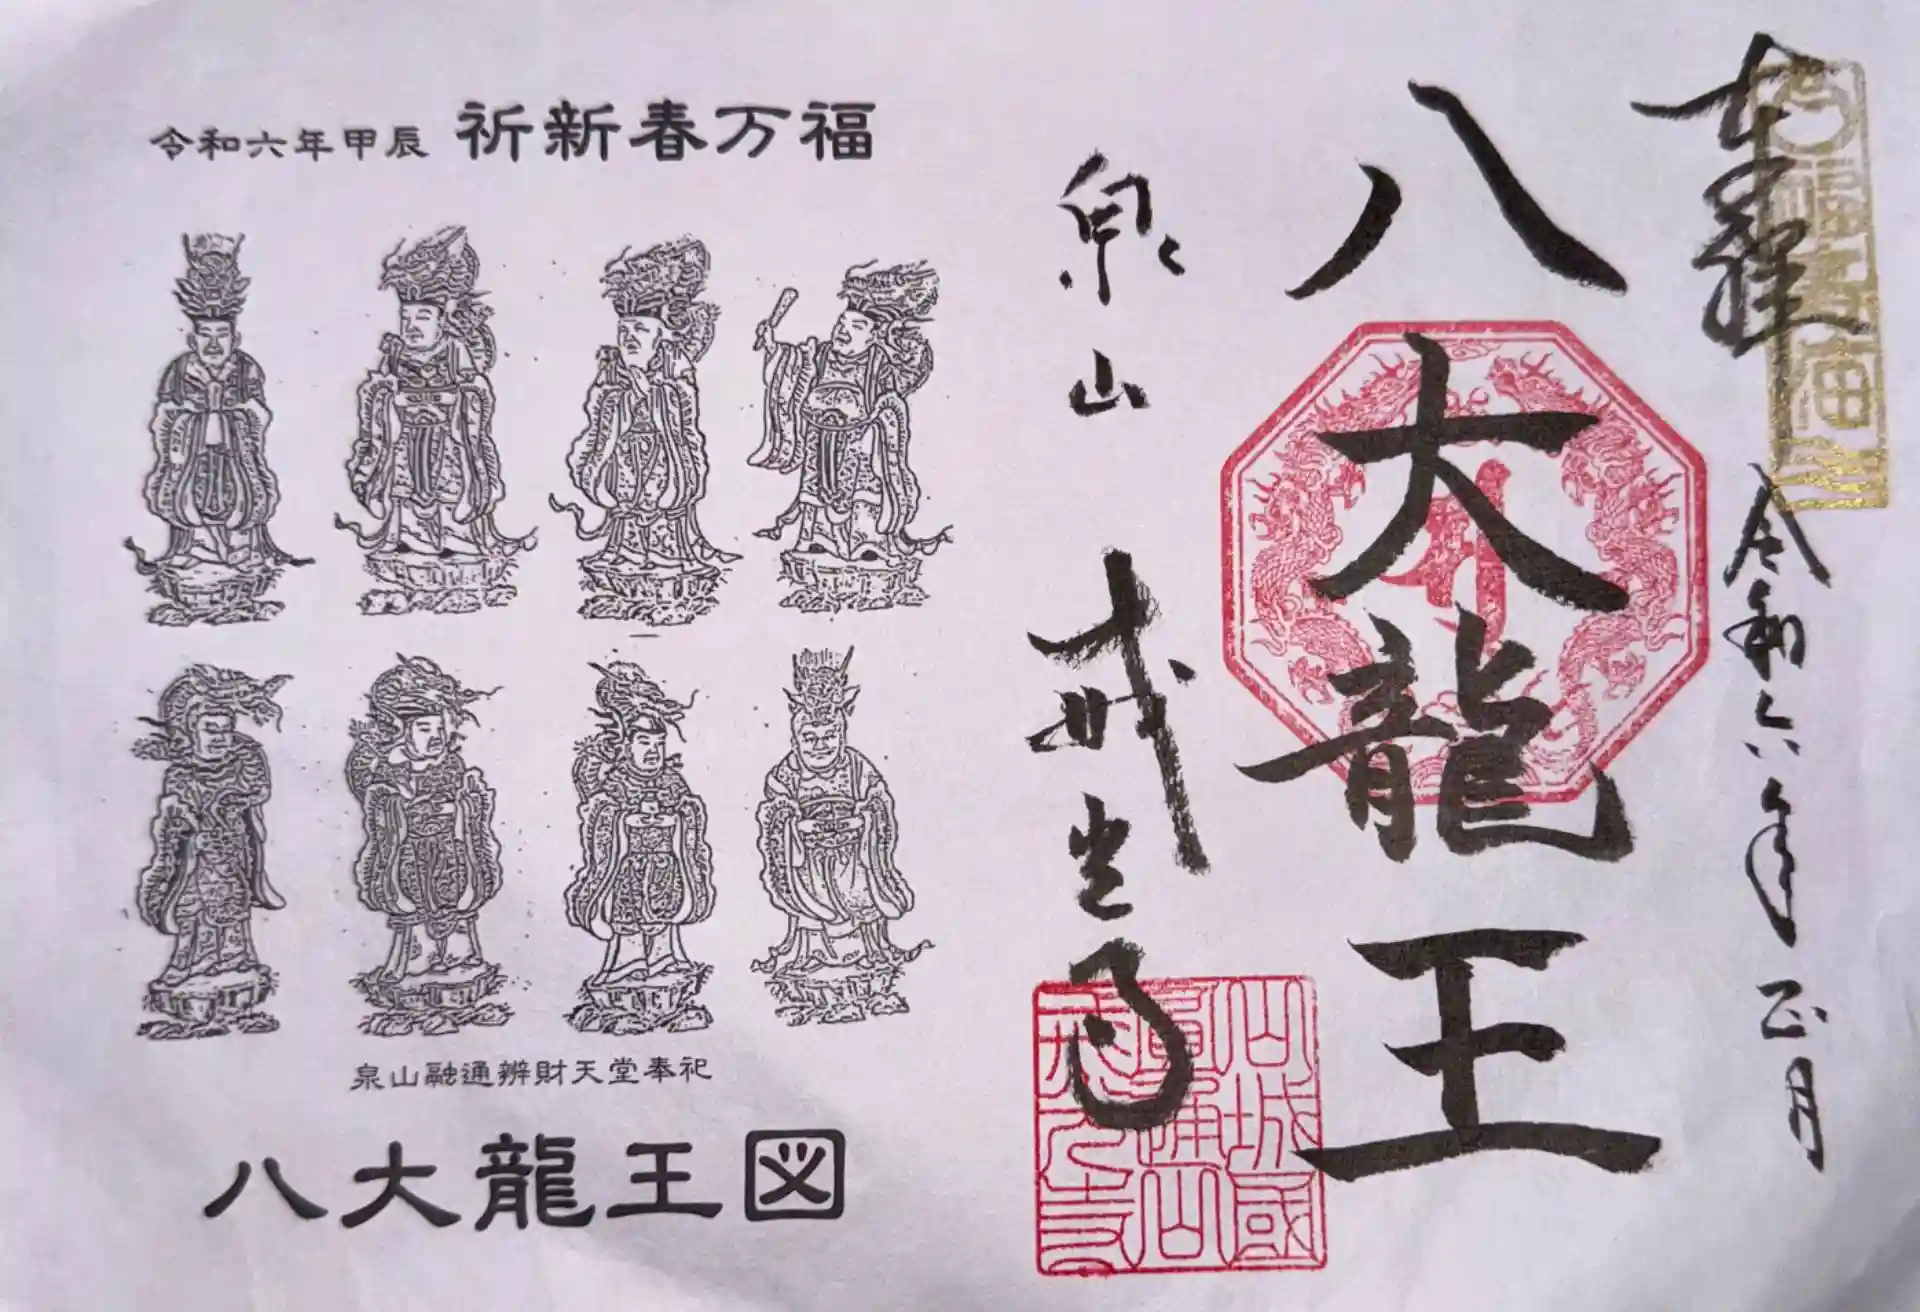 奉拝 令和六年正月
八大龍王
泉山 戒光寺
令和六年甲辰 祈新春万福
泉山融通辨財天堂奉祀
八大龍王図